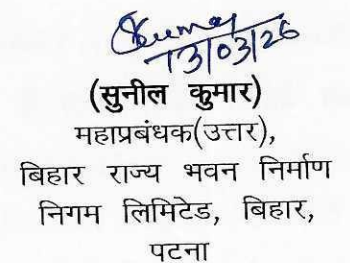 Skumar
13/03/26
(सुनील कुमार)
महाप्रबंधक(उत्तर),
बिहार राज्य भवन निर्माण
निगम लिमिटेड, बिहार,
पटना